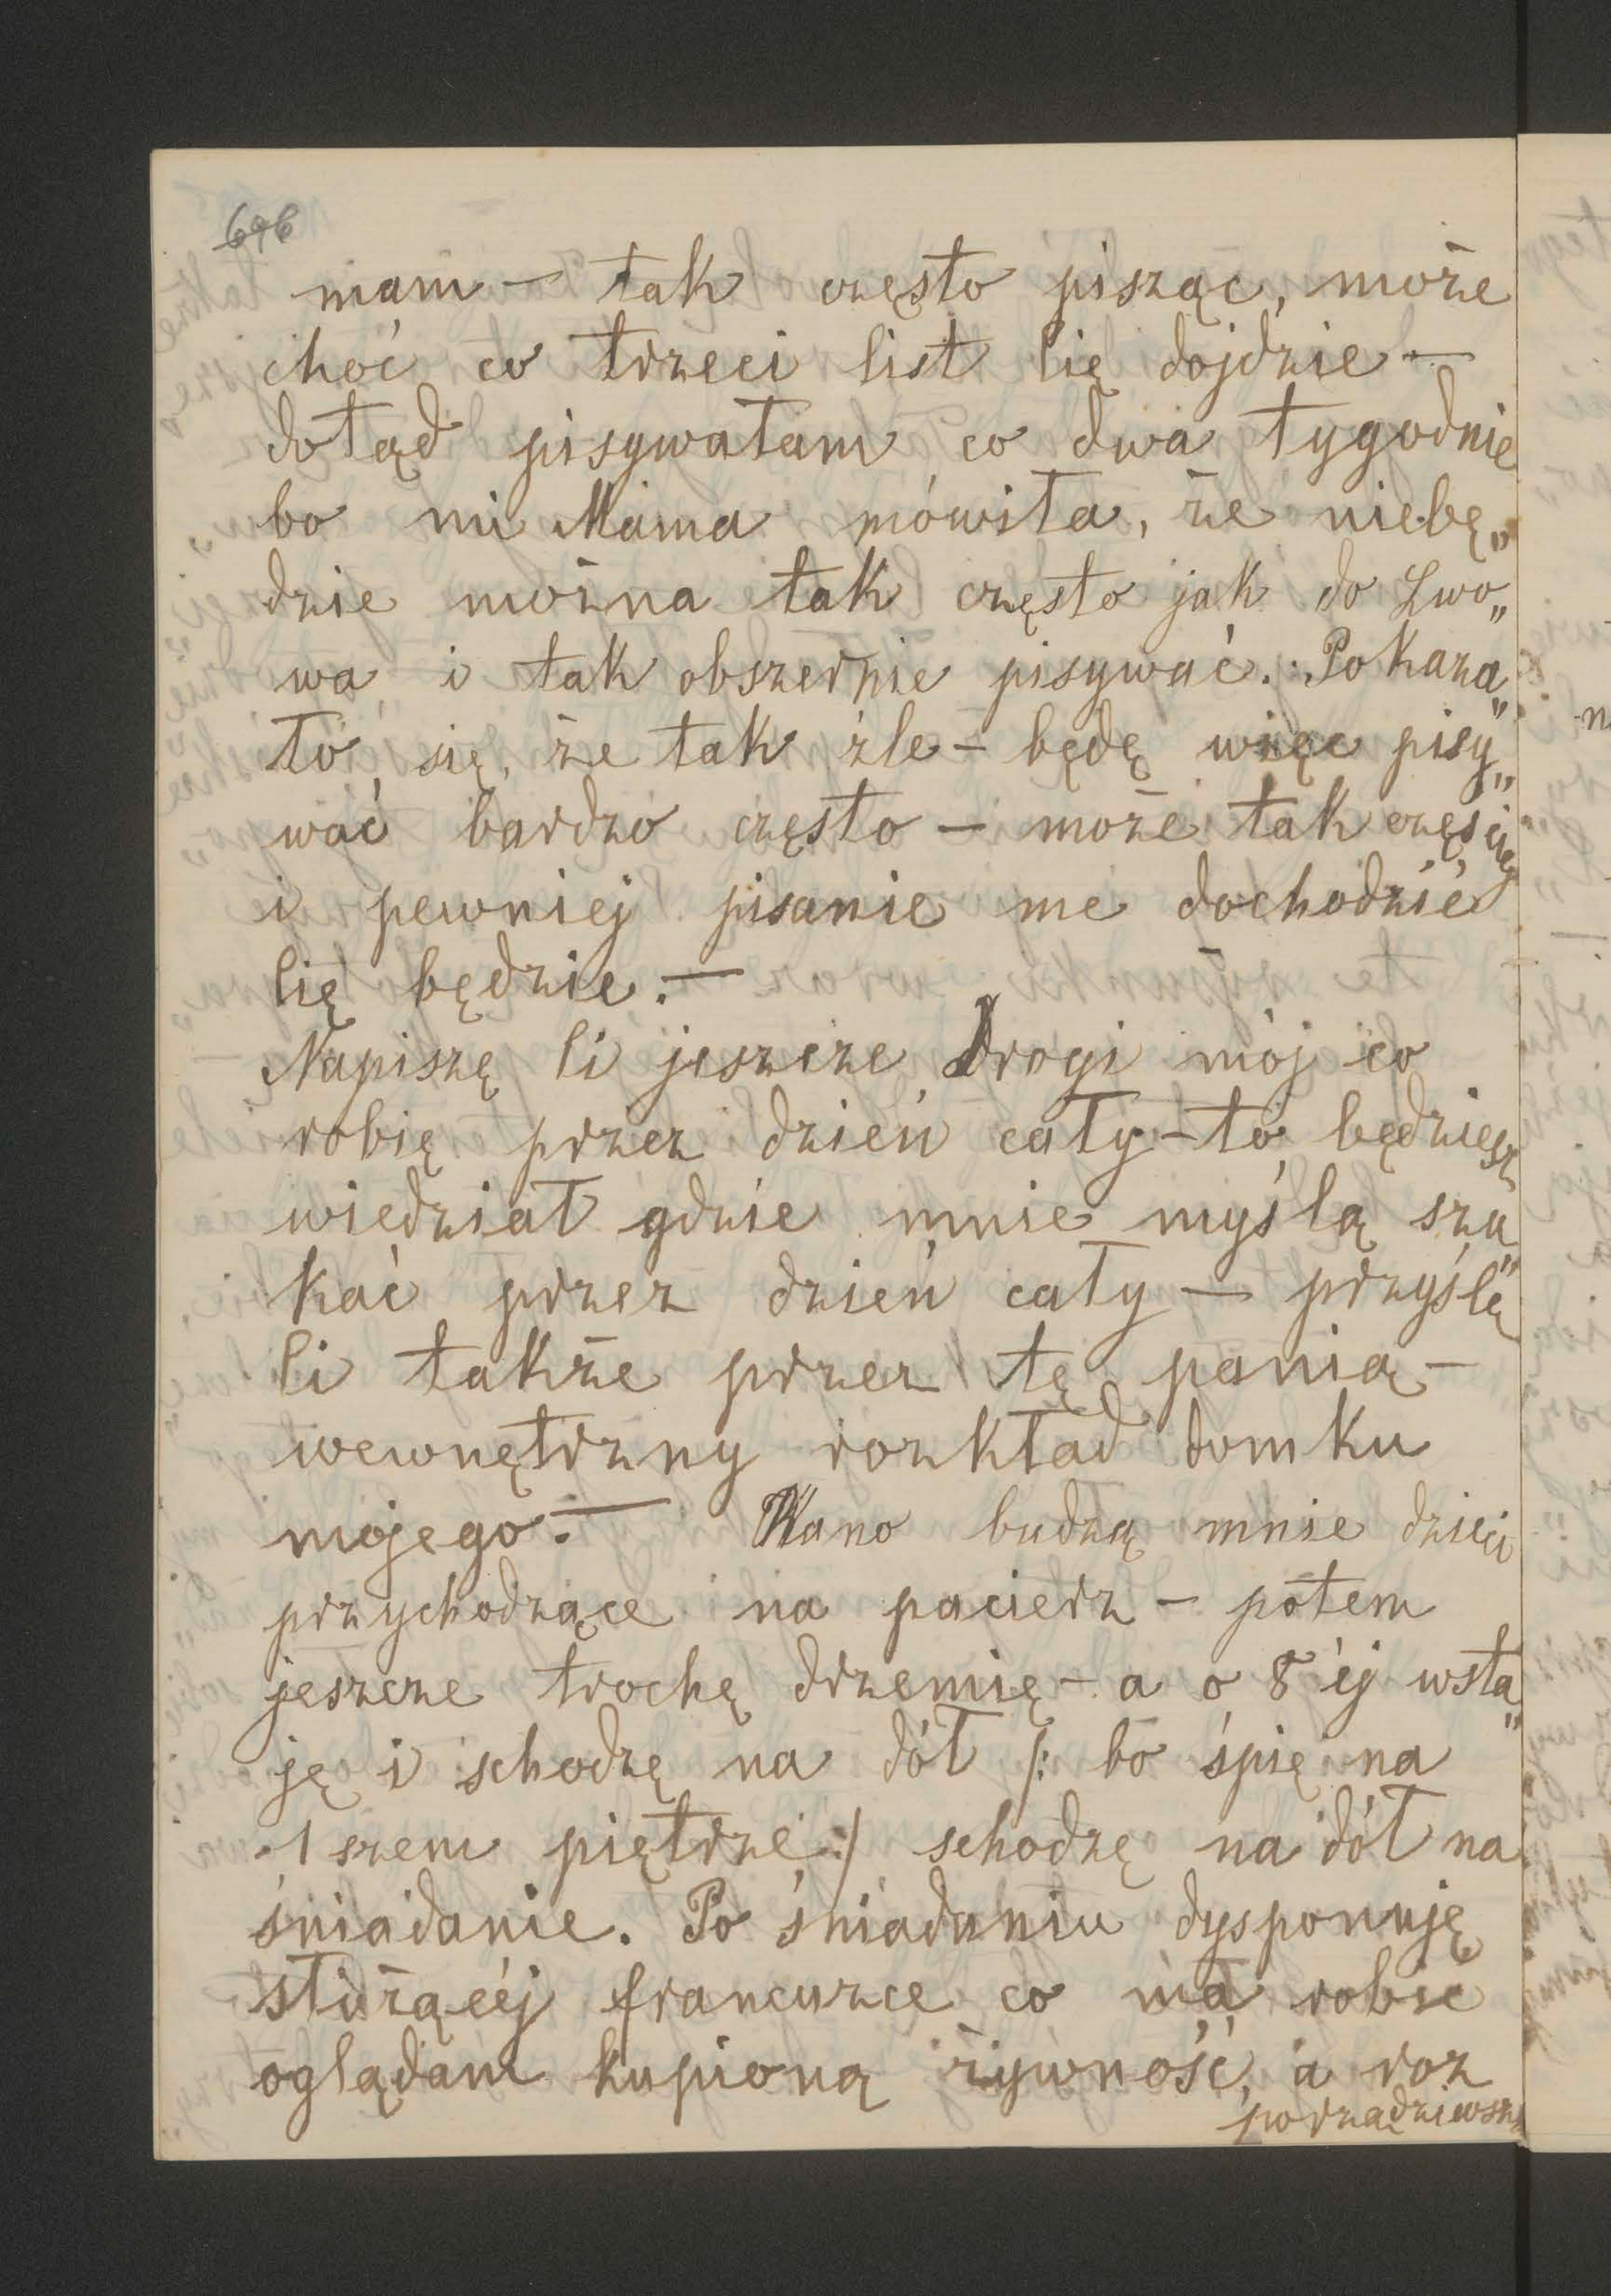 696
mam — tak często pisząc, może
choć co trzeci list Cię dojdzie —
dotąd pisywałam co dwa tygodnie
bo mi Mama mówiła, że niebę„
dzie można tak często jak do Lwo„
wa i tak obszernie pisywać. Pokaza„
ło się, że tak źle — będę więc pisy„
wać bardzo często — może tak częściej
i pewniej pisanie me dochodzić
Cię będzie. —
Napiszę Ci jeszcze Drogi mój co
robię przez dzień cały — to będziesz
wiedział gdzie mnie myślą szu„
kać przez dzień cały — przyślę
Ci także przez tę panią —
wewnętrzny rozkład domku
mojego. — Rano budzą mnie dzieci
przychodzące na pacierz — potem
jeszcze trochę drzemię — a o 8 éj wsta„
ję i schodzę na dół /: bo śpię na
1 szem piętrze :/ schodzę na dół na
śniadanie. Po śniadaniu dysponuję
służącéj francuzce co ma robić
oglądam kupioną żywność, a roz
porządziwszy